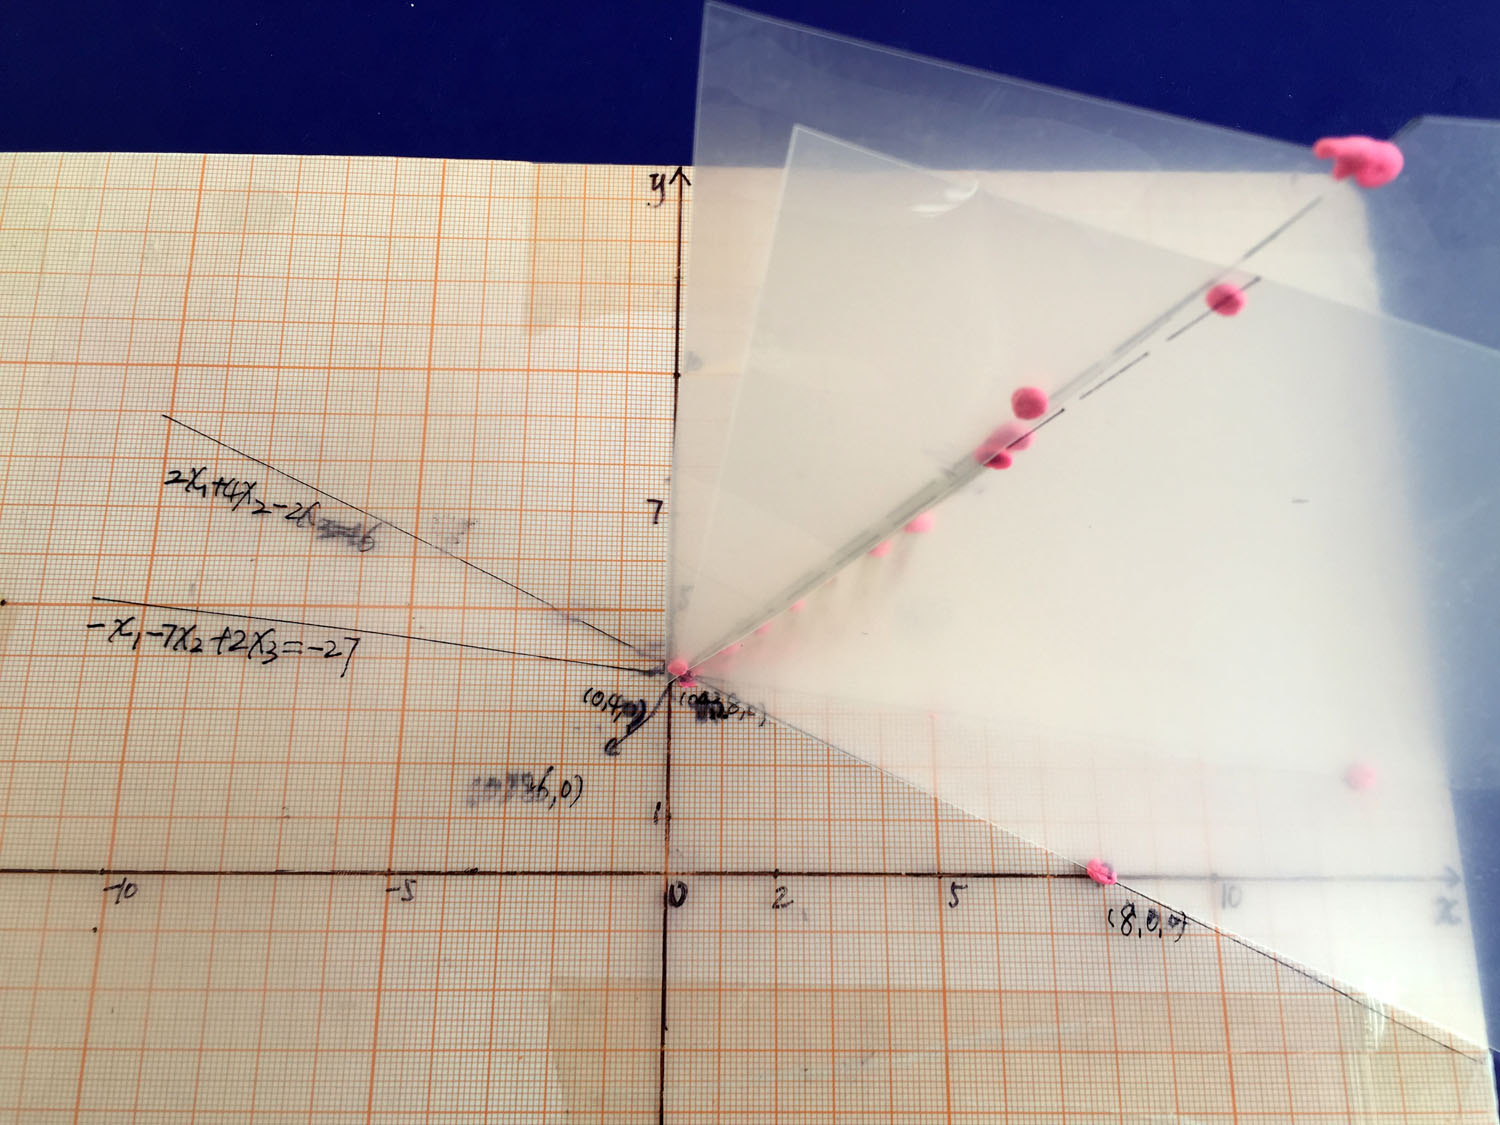 y
2x₁+4x₂-2x₃
7
-x₁-7x₂+2x₃=-27
(0,4,0)
1
-10
-5
0
2
5
10
x
(8,0,0)